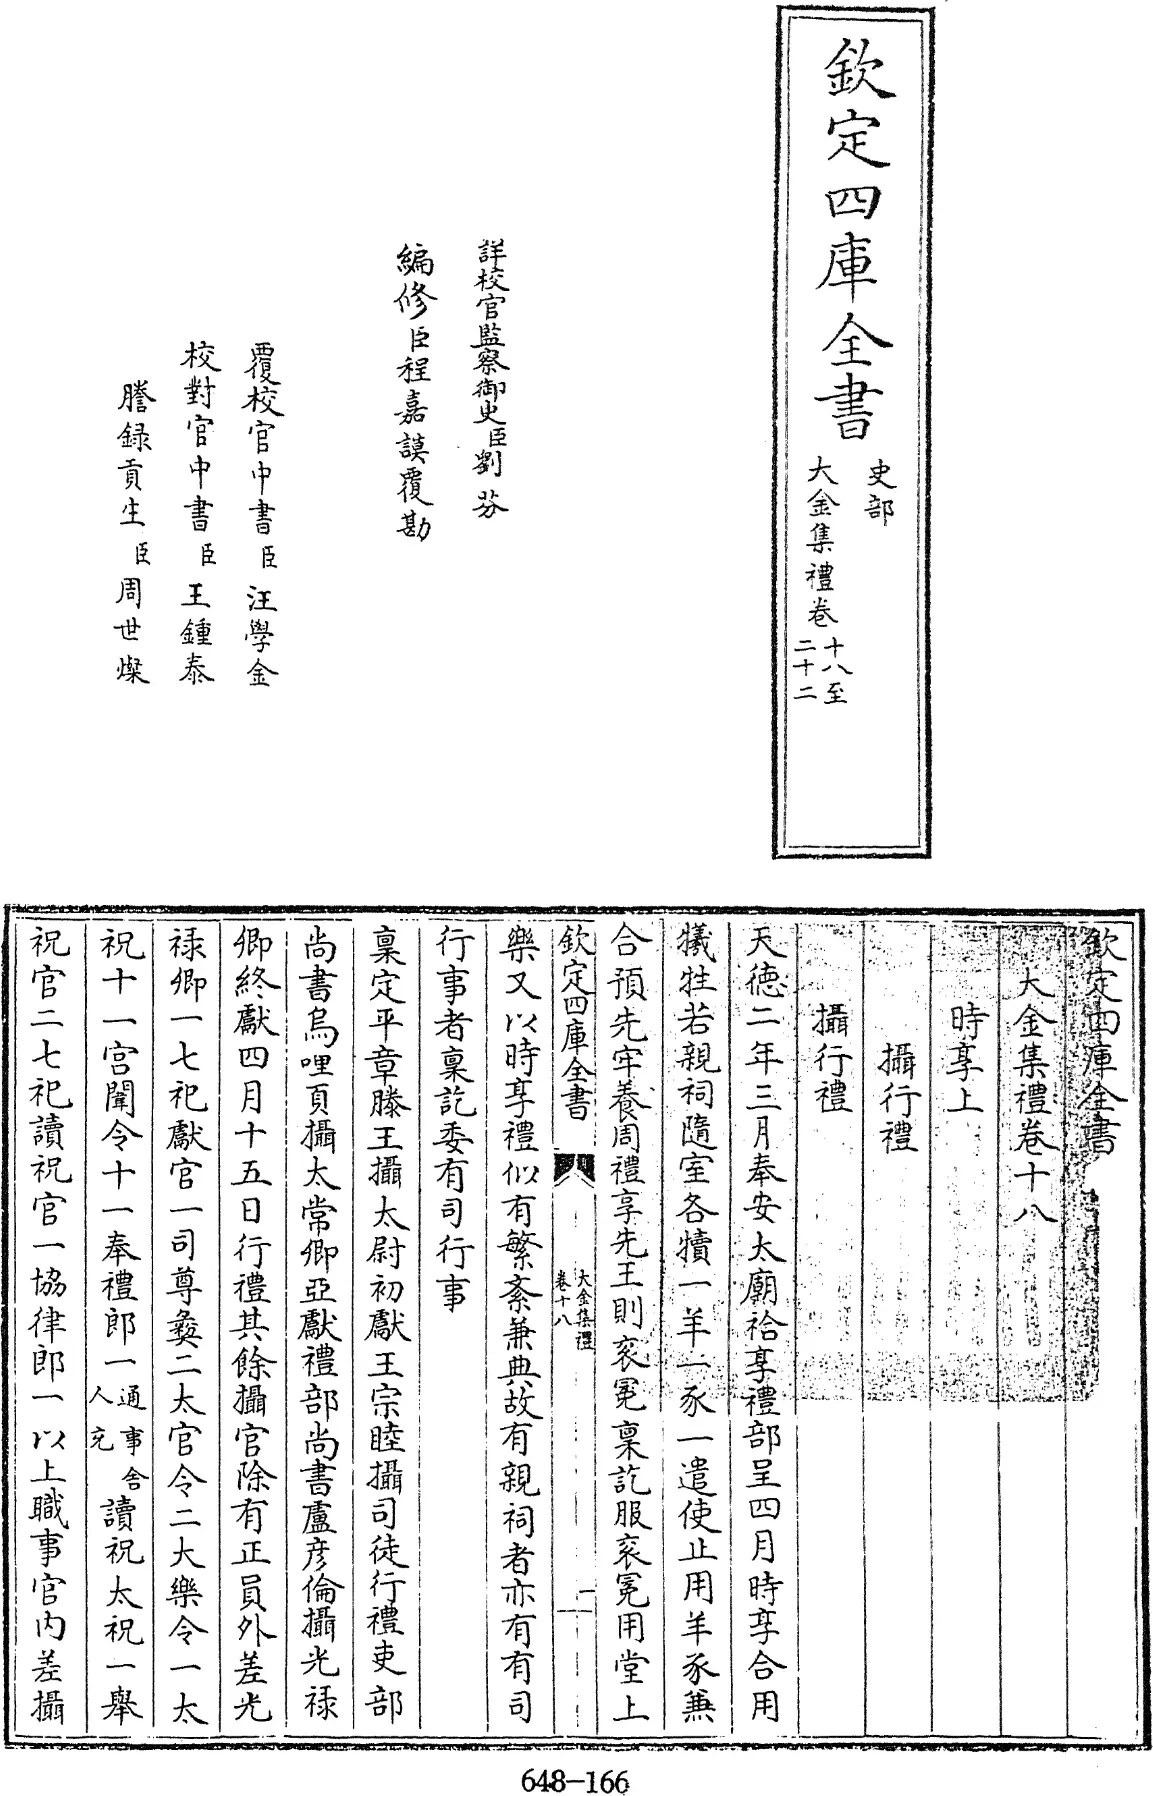 欽定四庫全書
史部
大金集禮卷
十八至
二十二
詳校官監察御史臣劉芬
編修臣程嘉謨覆勘
覆校官中書臣汪學金
校對官中書臣王鍾泰
謄錄貢生臣周世燦
欽定四庫全書
大金集禮卷十八
時享上
攝行禮
攝行禮
天德二年三月奉安太廟祫享禮部呈四月時享合用
犧牲若親祠隨室各犢一羊一豕一遣使止用羊豕兼
合預先牢養周禮享先王則衮冕稟訖服衮冕用堂上
欽定四庫全書
大金集禮
卷十八
一
樂又以時享禮似有繁紊兼典故有親祠者亦有有司
行事者稟訖委有司行事
稟定平章滕王攝太尉初獻王宗睦攝司徒行禮吏部
尚書烏哩頁攝太常卿亞獻禮部尚書盧彦倫攝光禄
卿終獻四月十五日行禮其餘攝官除有正員外差光
禄卿一七祀獻官一司尊彝二太官令二大樂令一太
祝十一宫闈令十一奉禮郎一通事舍人充讀祝太祝一舉
祝官二七祀讀祝官一協律郎一以上職事官内差攝
648-166